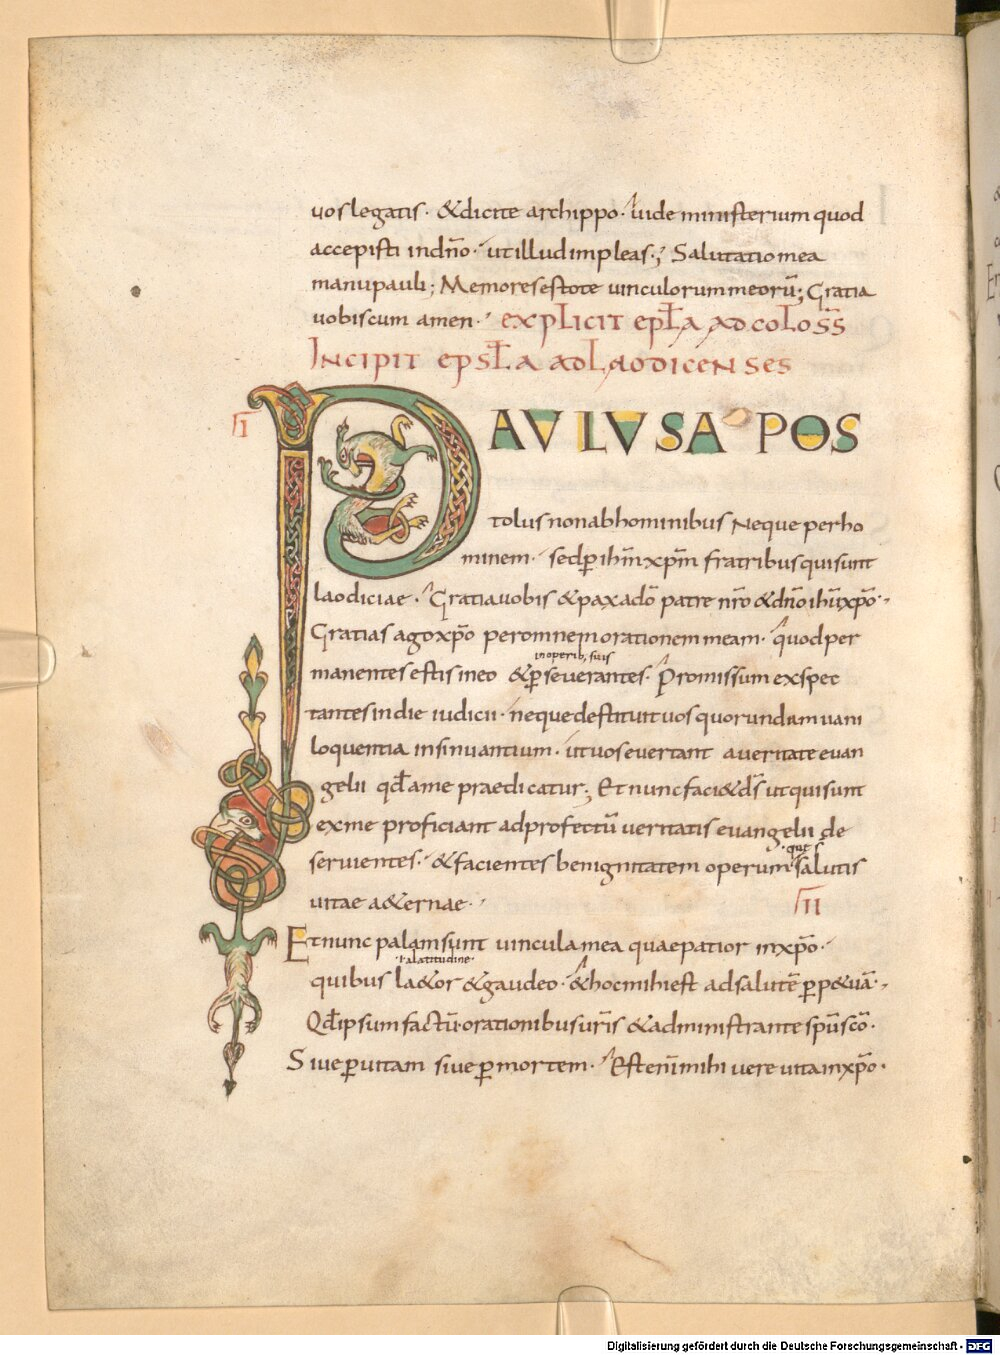 uos legatis · & dicite archippo · uide ministerium quod
accepisti in dn̄o · ut illud impleas ·; Salutatio mea
manu pauli ; Memores estote uinculorum meorū ; Gratia
uobiscum amen · EXPLICIT EPLA AD COLOSS
INCIPIT EPSLA AD LAODICENSES
I
PAULUS APOS
tolus non ab hominibus Neque per ho
minem · sed p̄ ihm̄ xpm̄ fratribus qui sunt
laodiciae · Gratia uobis & pax a dō patre nr̄o & dn̄o ihū xpō ·
Gratias ago xpō per omnem orationem meam · quod per
in operib; suis
manentes estis in eo & p̄seuerantes · Promissum exspec
tantes in die iudicii · neque destituit uos quorundam uani
loquentia insinuantium · ut uos euertant a ueritate euan
gelii qd̄ a me praedicatur ; Et nunc faci& ds̄ ut qui sunt
ex me proficiant ad profectū ueritatis euangelii de
· que s̄
seruientes · & facientes benignitatem operum salutis
uitae a&ernae ·
II
Et nunc palam sunt uincula mea quae patior in xpō ·
· ł a latitudine ·
quibus la&or & gaudeo · & hoc mihi est ad salutē p̄p&uā ·
Qd̄ ipsum factū · orationibus ur̄is & administrante spū scō ·
Siue p̄ uitam siue p̄ mortem · Est enī mihi uere uita in xpō ·
Digitalisierung gefördert durch die Deutsche Forschungsgemeinschaft - DFG